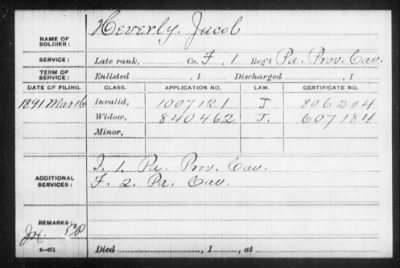 NAME OF SOLDIER: Heverly, Jacob
SERVICE: Late rank, Co. F, 1 Reg't Pa. Prov. Cav.
TERM OF SERVICE: Enlisted , 1 Discharged , 1
DATE OF FILING. CLASS. APPLICATION NO. LAW. CERTIFICATE NO.
1891 Mar 16 Invalid, 1007121 J 806204
Widow, 840462 J. 607184
Minor,
ADDITIONAL SERVICES: I. 1. Pa. Prov. Cav.
F. 2. Pa. Cav.
REMARKS:
Died , 1 , at